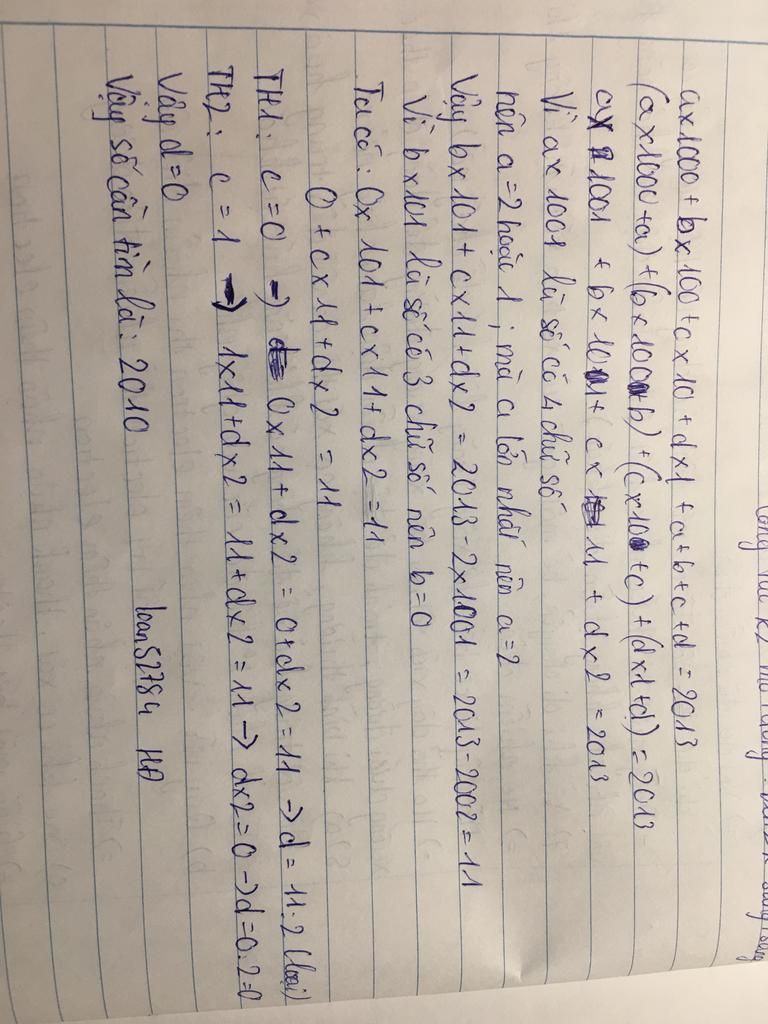 ax1000 + bx100 + cx10 + dx1 + a+b+c+d = 2013
(ax1000+a)+(bx100+b)+(cx10+c)+(dx1+d)=2013
ax1001 + bx101+ cx11 + dx2 = 2013
Vì ax1001 là số có 4 chữ số
nên a=2 hoặc 1 ; mà a lớn nhất nên a=2
Vậy bx101+cx11+dx2 = 2013-2x1001 = 2013-2002=11
Vì bx101 là số có 3 chữ số nên b=0
Ta có: 0x101+cx11+dx2=11
0+cx11+dx2 = 11
TH1: c=0 → 0x11+dx2 = 0+dx2=11 → d=11:2 (loại)
TH2: c=1 → 1x11+dx2=11+dx2=11 → dx2=0 → d=0:2=0
Vậy d=0
Vậy số cần tìm là: 2010
loan52784 HĐ